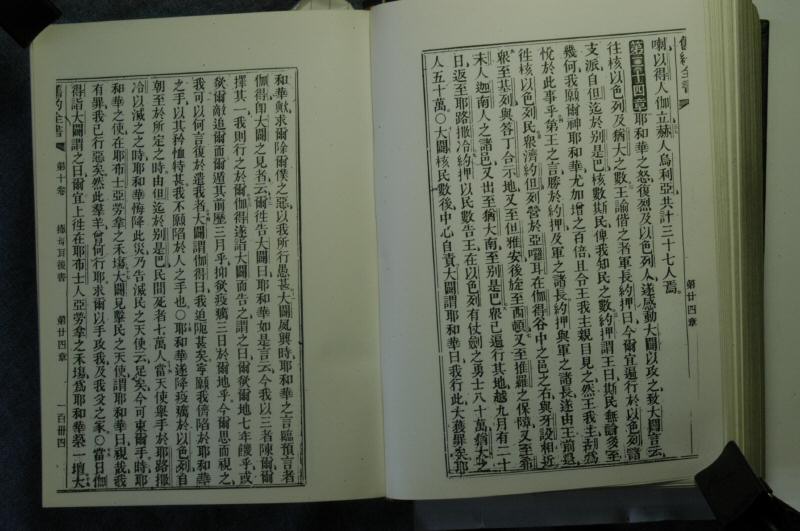 喇以得人伽立赫人烏利亞共計三十七人焉
第二十四章耶和華之怒復烈及以色列人遂感動大闢以攻之致大闢言云
往核以色列及猶大之數王諭偕之者軍長約押曰今爾宜遍行於以色列諸
支派自但迄於別是巴核數斯民俾我知民之數約押謂王曰斯民無論多至
幾何我願爾神耶和華尤加增之百倍且令王我主親目見之然王我主胡爲
悅於此事乎第王之言勝於約押及軍之諸長約押與軍之諸長遂由王前退
往核以色列民衆濟約但列營於亞囉耳在伽得谷中之邑之右與牙設相近
衆至基列與谷丁合示地又至但雅安後旋至西頓又至推羅之保障又至希
未人迦南人之諸邑又出至猶大南至別是巴衆已遍行其地越九月有二十
日返至耶路撒冷約押以民數告王在以色列有仗劍之勇士八十萬猶大之
人五十萬○大闢核民數後中心自責大闢謂耶和華曰我行此大獲罪矣耶
第廿四章
和華歟求爾除爾僕之惡以我所行愚甚大闢夙興時耶和華之言臨預言者
伽得卽大闢之見者云爾往告大闢曰耶和華如是言云今我以三者陳爾爾
擇其一我則行之於爾伽得遂詣大闢而告之謂之曰爾欲爾地七年饑乎或
欲爾敵追爾而爾遁其前歷三月乎抑欲疫癘三日於爾地乎今爾思而視之
我可以何言復於遣我者大闢謂伽得曰我迫阨甚矣寧願我儕陷於耶和華
之手以其矜恤特甚我不願陷於人之手也○耶和華遂降疫癘於以色列自
朝至於所定之時由但迄於別是巴民間死者七萬人當天使舉手於耶路撒
冷以滅之之時耶和華悔降此災乃告滅民之天使云足矣今可束爾手時耶
和華之使在耶布士亞勞拿之禾塲大闢見擊民之天使謂耶和華曰視哉我
有罪我已行惡矣然此羣羊曾何行耶求爾以手攻我及我父之家○當日伽
得詣大闢謂之曰爾宜上往在耶布士人亞勞拿之禾塲爲耶和華築一壇大
舊約全書 第十卷 撒母耳後書 第廿四章 一百卌四